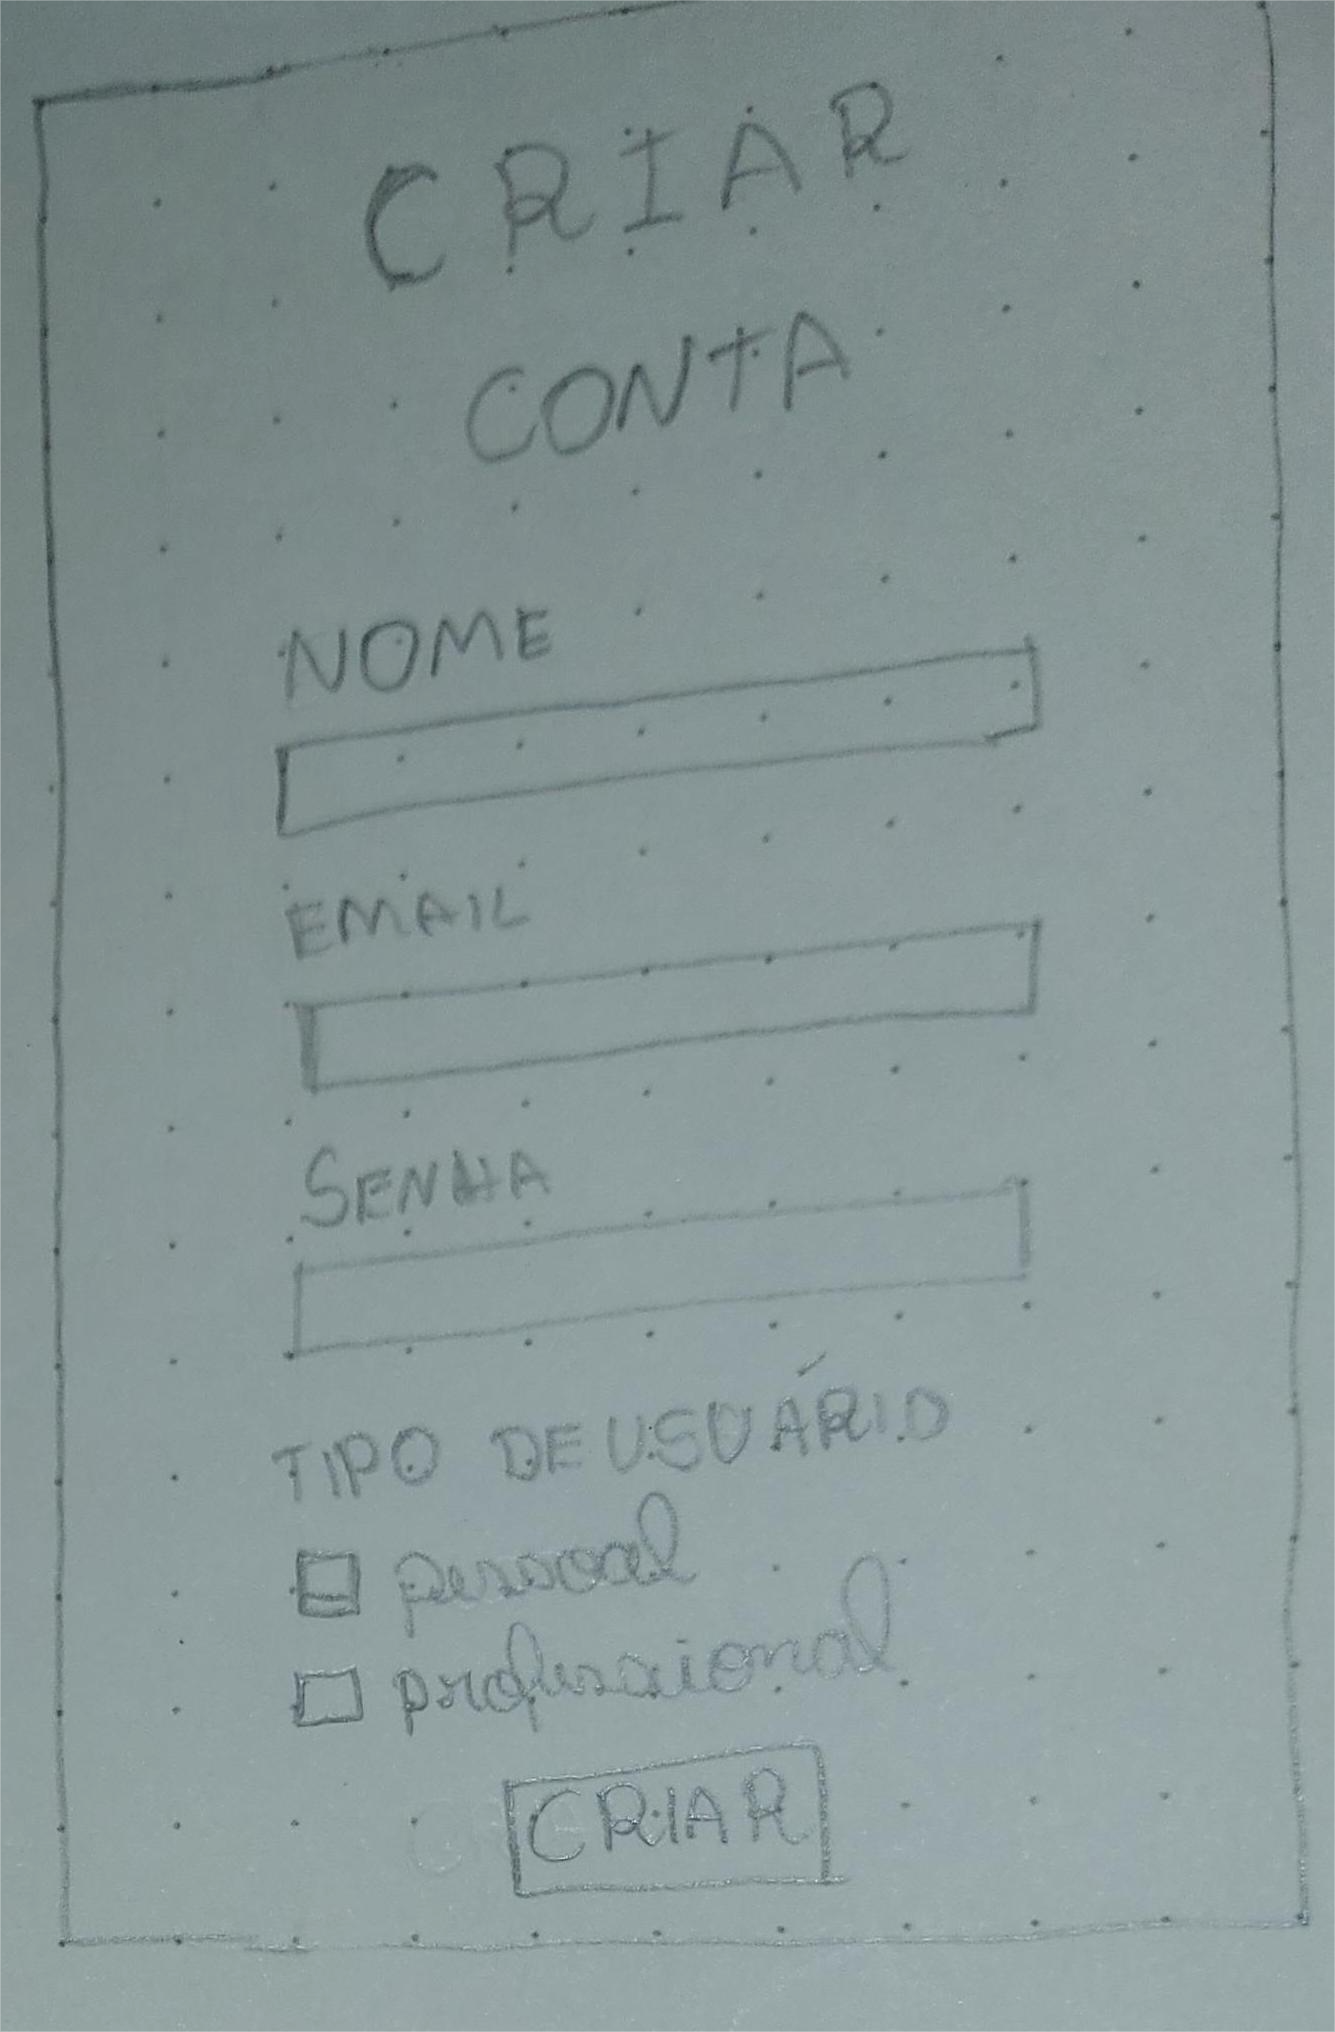 CRIAR
CONTA
NOME
EMAIL
SENHA
TIPO DE USUÁRIO
pessoal
profissional
CRIAR